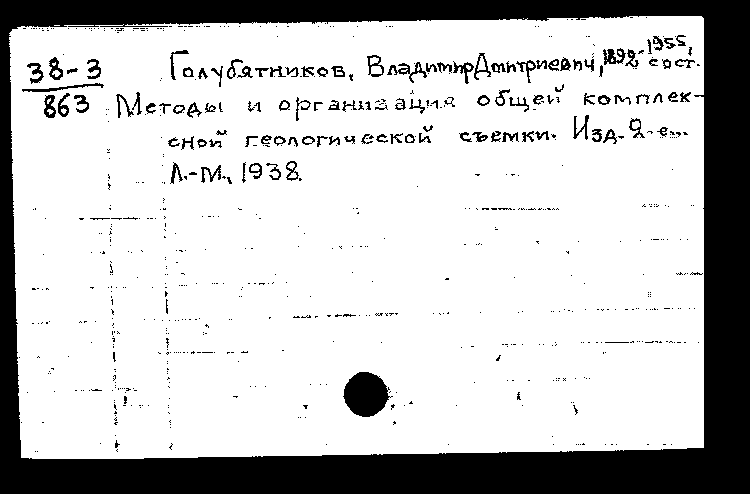 38-3
863
Голубятников, Владимир Дмитриевич, 1892-1955, сост.
Методы и организация общей комплек-
сной геологической съемки. Изд. 2-е.
Л.-М., 1938.